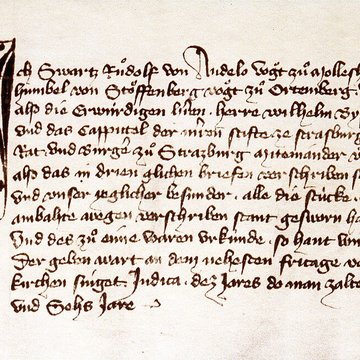 Ich Swartz Rudolf von Andelo vogt zů
humbel von Stoͤffenberg vogt zů Ortemberg
alß die Erwirdigen herre wilhelm By
und das Cappittel der stifte ze strasburg
Rat und Burg zů Strazburg
alß das in drien glichen briefen verschriben
und unser yeglicher besunder alle die stúcke
ambahte wegen verschriben stant gesworn
Und des zů eime waren urkúnde so hant
Der geben wart an dem nehesten fritage
kirchen singet Judica dez Jares do man zalte
und Sehs Jare